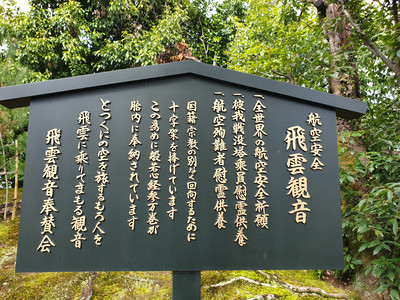 航空安全
飛雲観音
一、全世界の航空安全祈願
一、彼我戦没搭乗員慰霊供養
一、航空殉難者慰霊供養
国籍、宗教の別なく回向するために
十字架を捧げています
この為めに般若心経参千巻が
胎内に奉納されています
とつくにの空を旅するもろ人を
飛雲に乗りてまもる観音
飛雲観音奉賛会